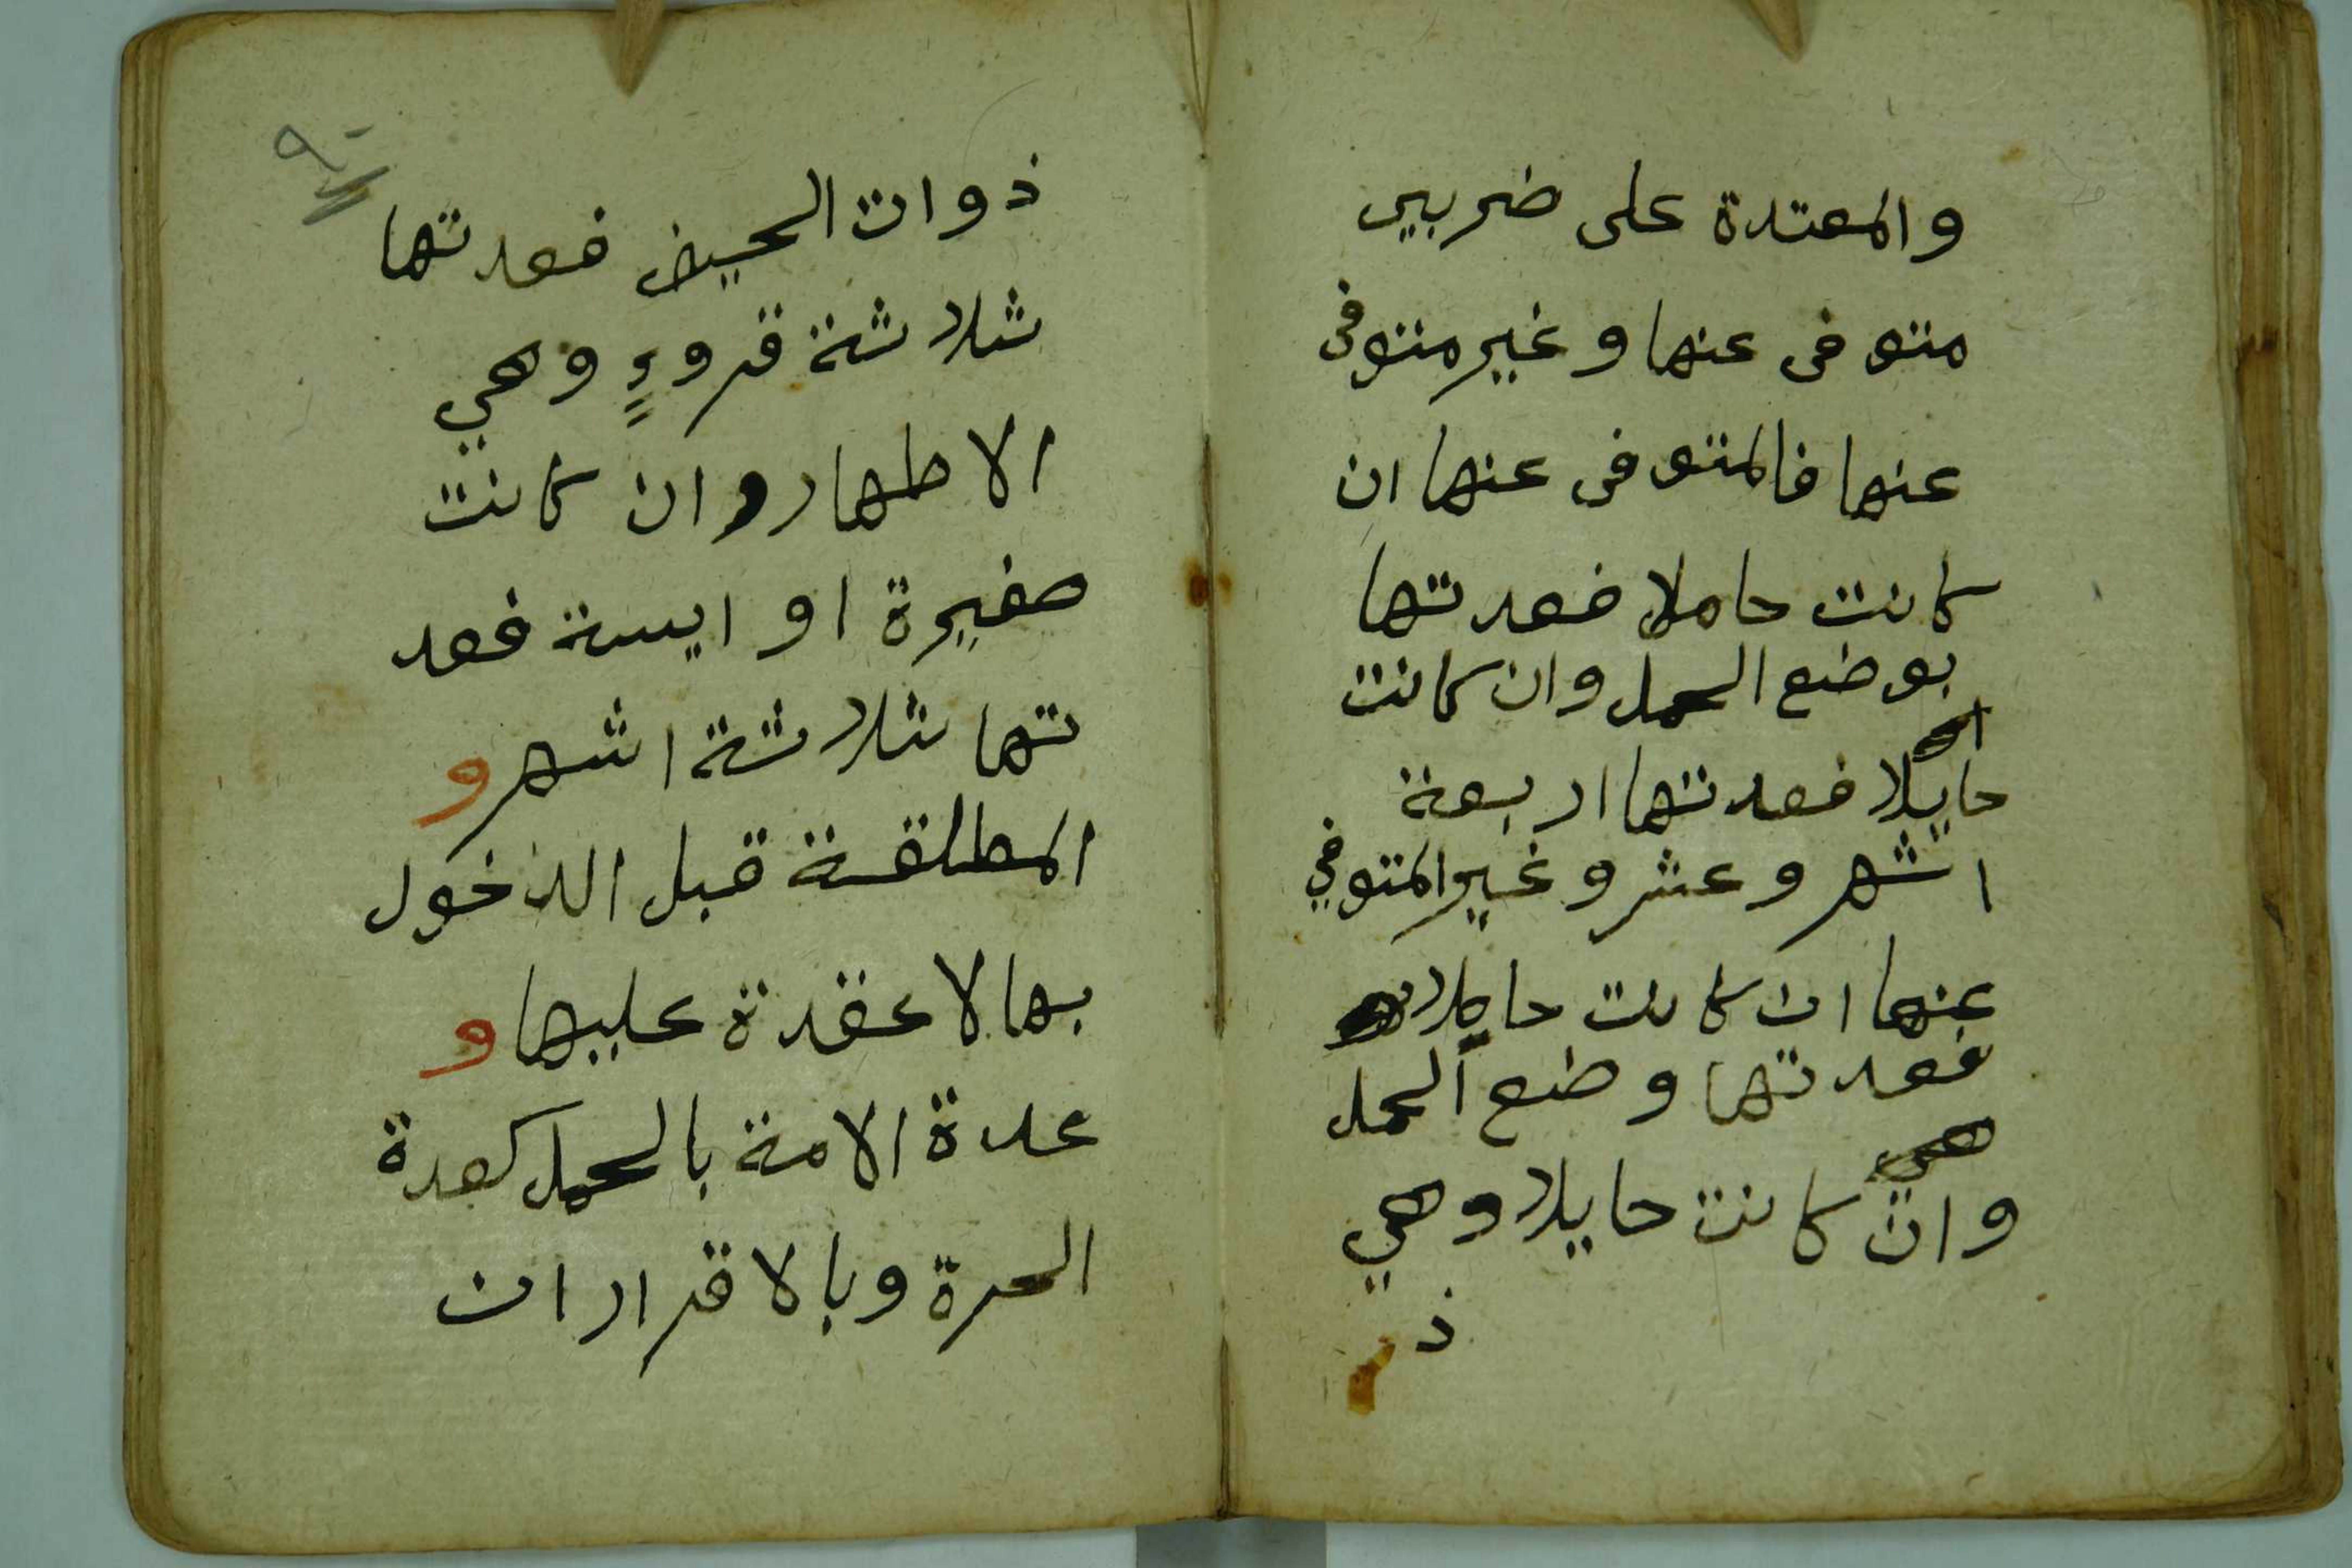 والمعتدة على ضربين
متوفى عنها وغير متوفى
عنها فالمتوفى عنها ان
كانت حاملا فعدتها
بوضع الحمل وان كانت
حايلا فعدتها اربعة
اشهر وعشر وغير المتوفي
عنها ان كانت حايلا
فعدتها وضع الحمل
وان كانت حايلا وهي
ذ
ذوات الحيض فعدتها
ثلاثة قروءٍ وهي
الاطهار وان كانت
صغيرة او ايسة فعد
تها ثلاثة اشهر و
المطلقة قبل الدخول
بها لا عقدة عليها و
عدة الامة بالحمل كعدة
الحرة وبالاقرار ان